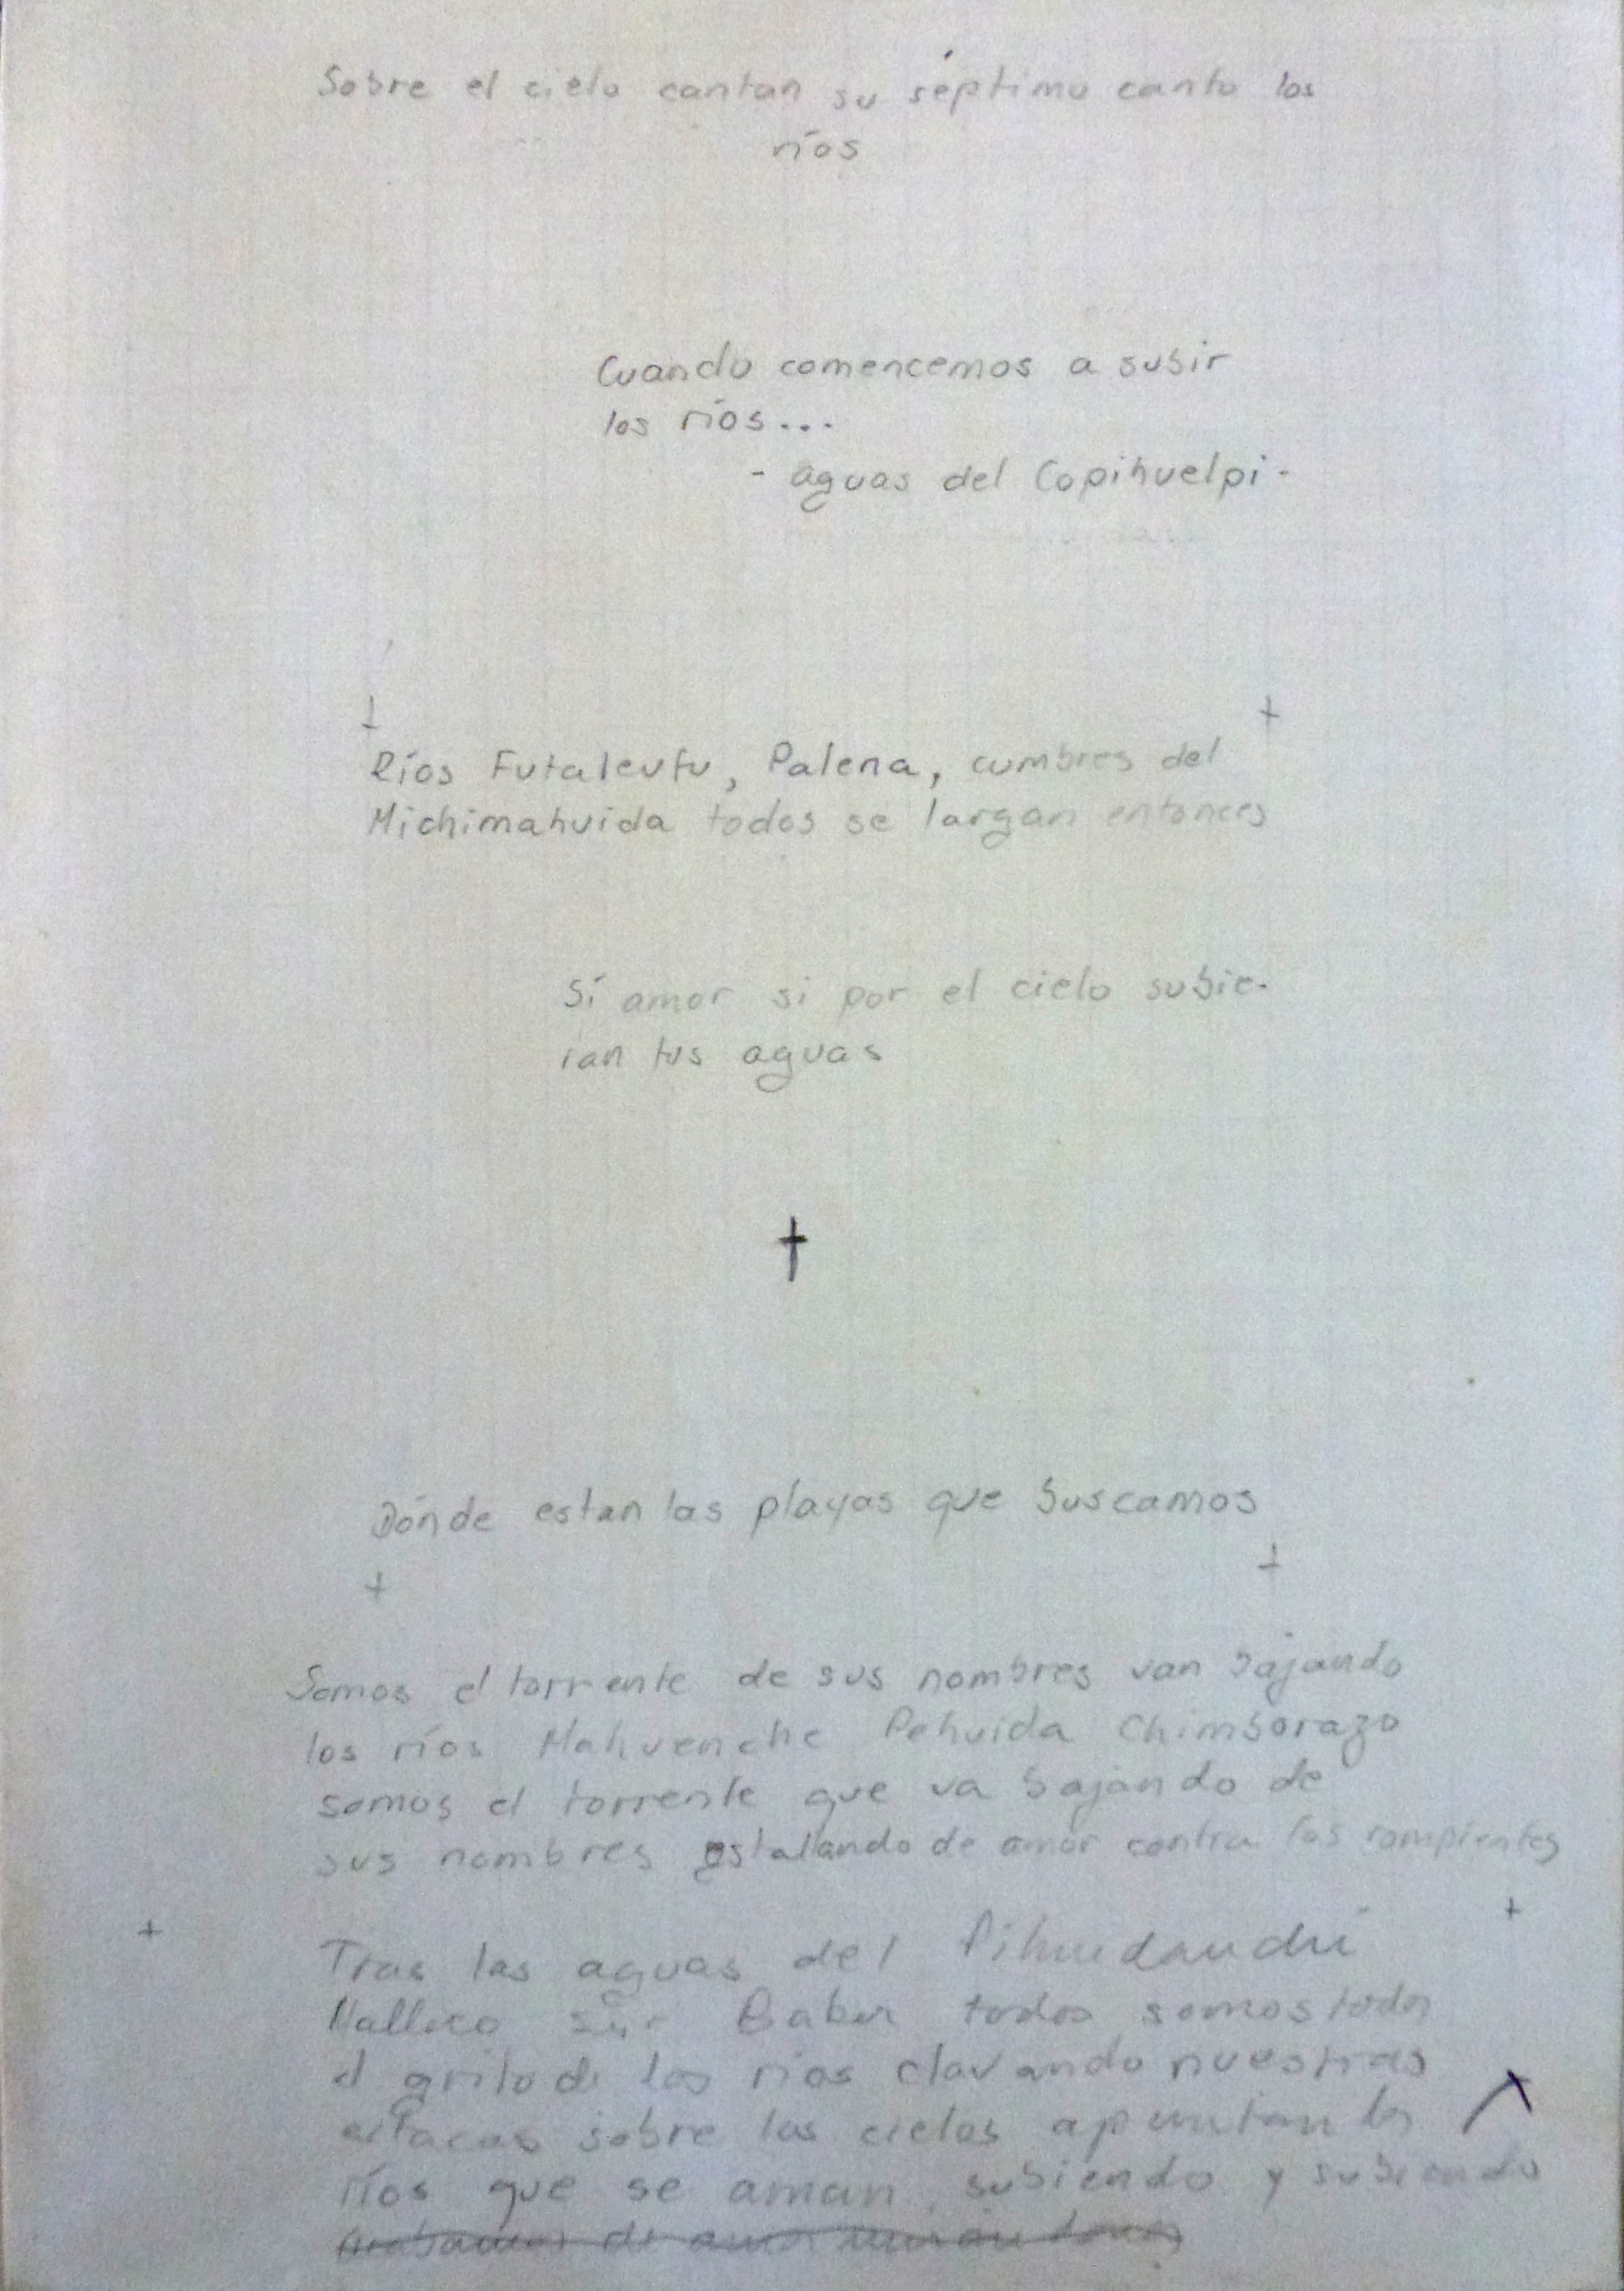 Sobre el cielo cantan su séptimo canto los
ríos
Cuando comencemos a subir
los ríos...
- aguas del Copihuelpi -
Ríos Futaleufu, Palena, cumbres del
Michimahuida todos se largan entonces
Sí amor si por el cielo subie-
ran tus aguas
Dónde estan las playas que buscamos
Somos el torrente de sus nombres van bajando
los ríos Mahuenche Pehuida Chimborazo
somos el torrente que va bajando de
sus nombres estallando de amor contra las rompientes
Tras las aguas del
Malleco sur Baker todos somos todos
el grito de los ríos clavando nuestras
estacas sobre los cielos apuntan los
ríos que se aman subiendo y subiendo